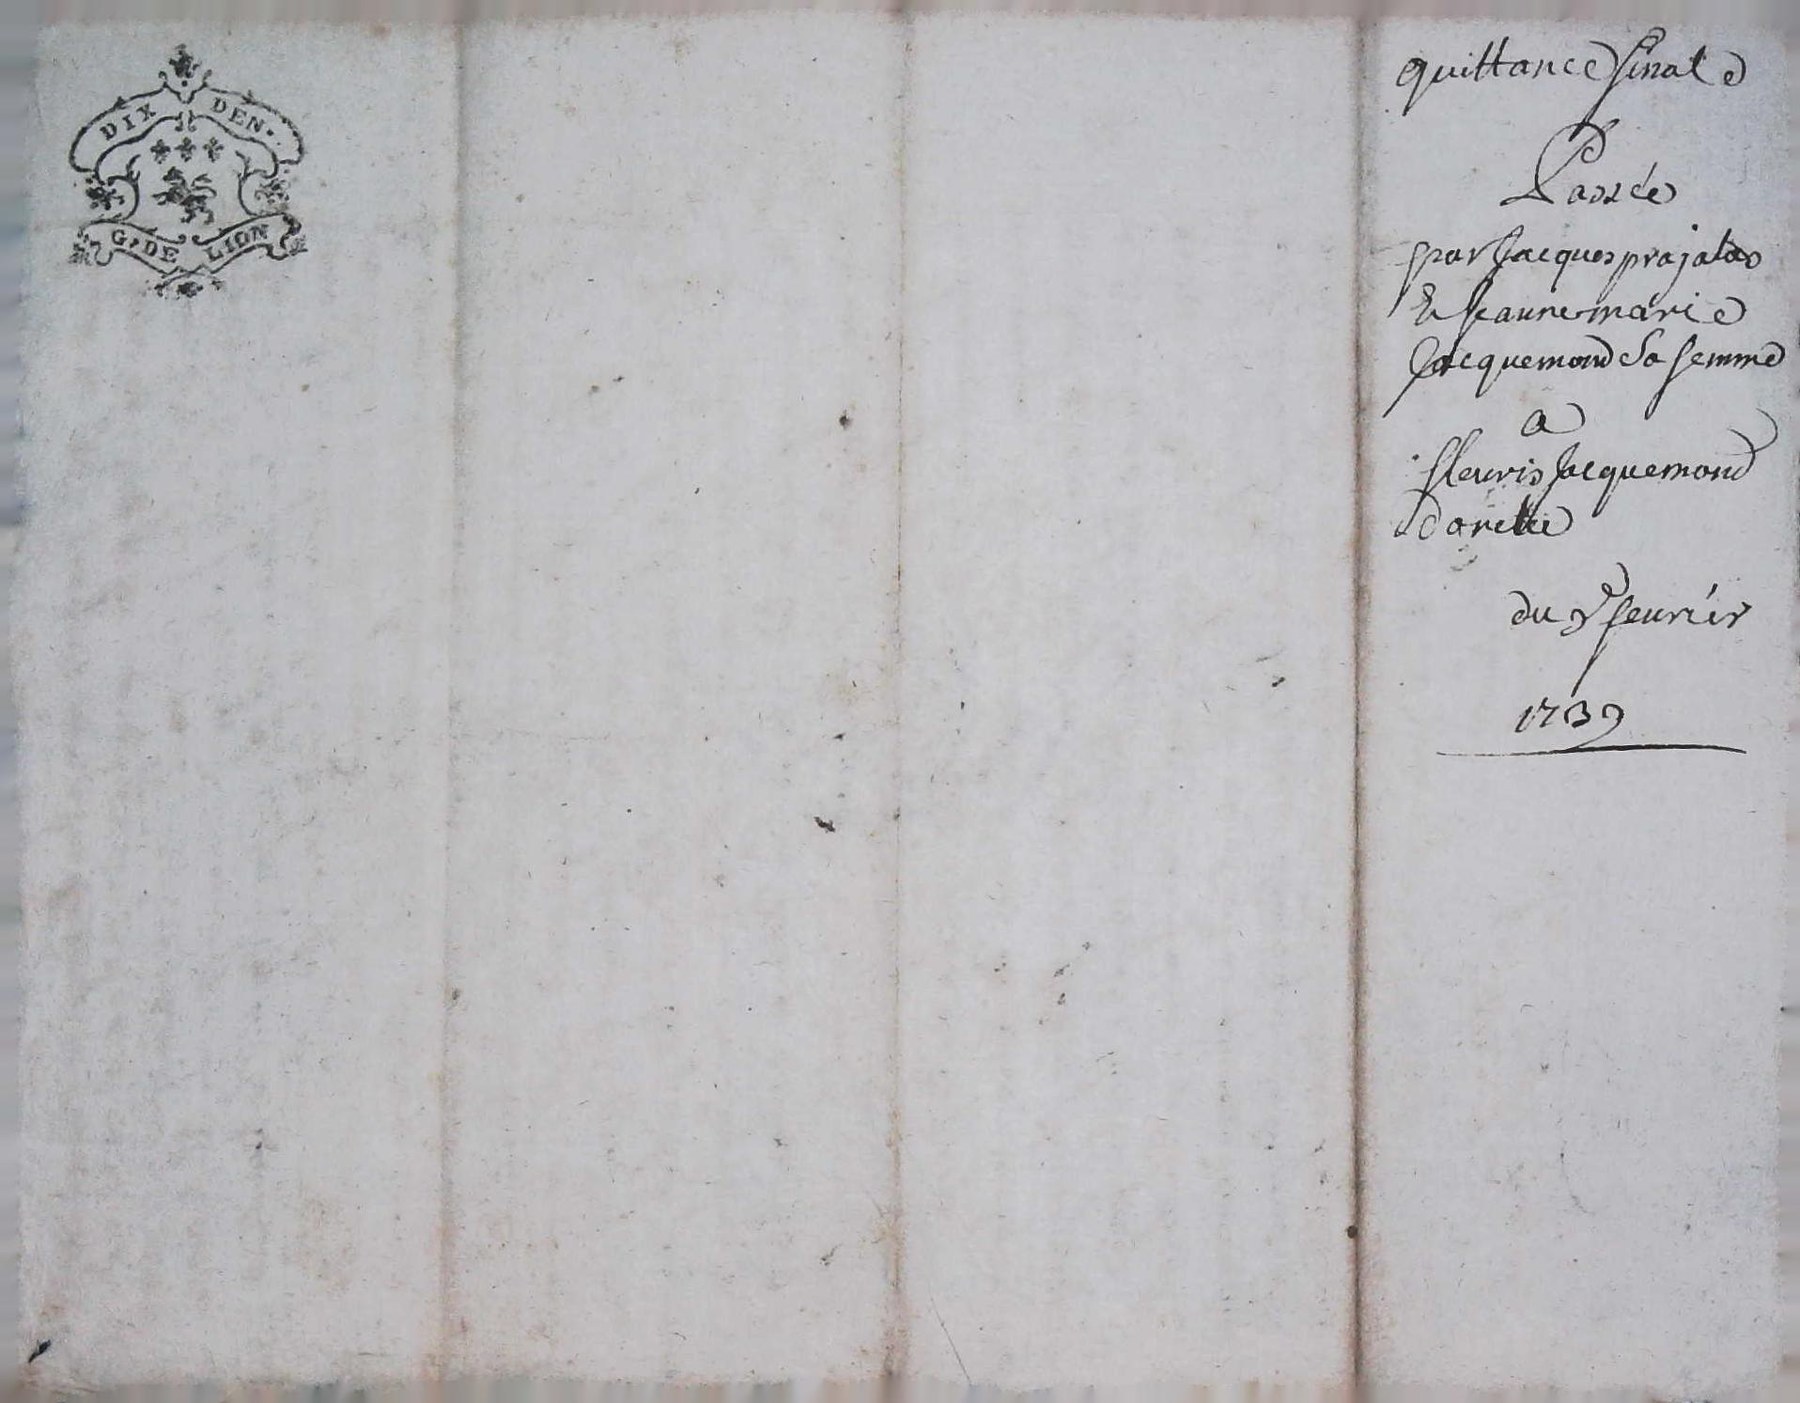 DIX DEN.
G. DE LION
quittance finale
Passée
par Jacques prajalas
Et Jeanne marie
Jacquemond Sa femme
a
fleuris Jacquemond
du feurier
1739